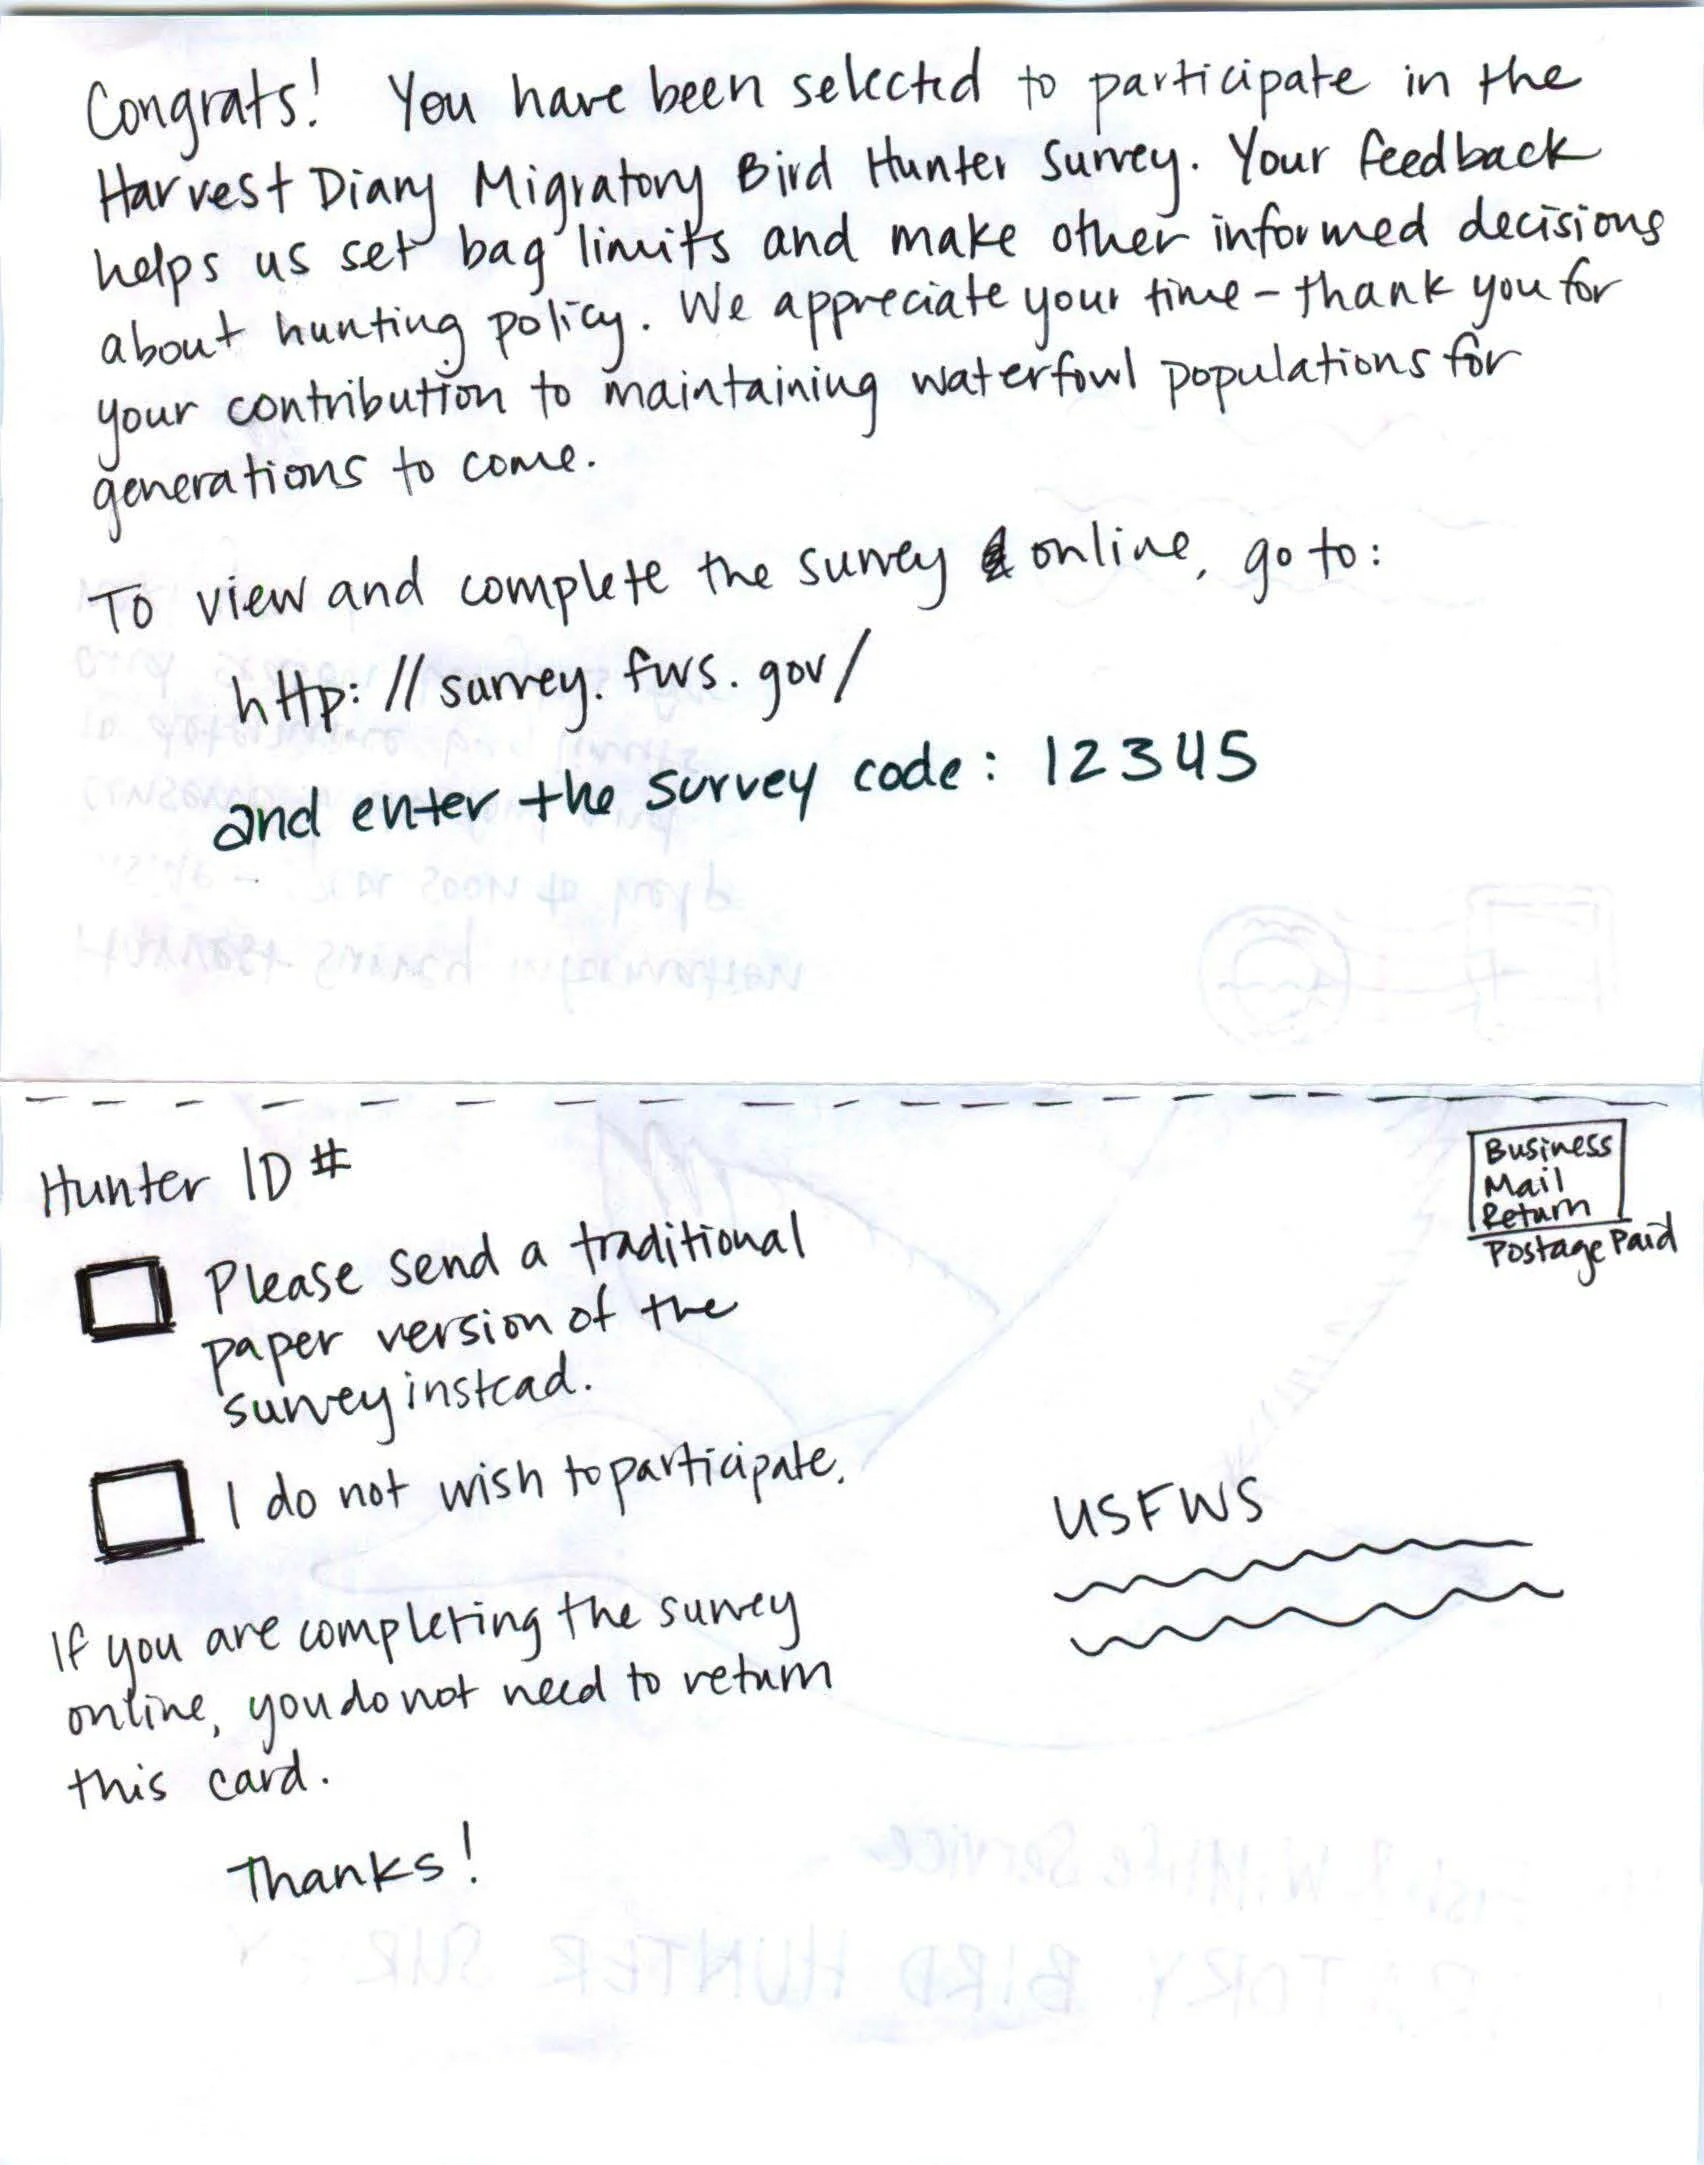 Congrats! You have been selected to participate in the
Harvest Diary Migratory Bird Hunter Survey. Your feedback
helps us set bag limits and make other informed decisions
about hunting policy. We appreciate your time - thank you for
your contribution to maintaining waterfowl populations for
generations to come.
To view and complete the survey online, go to:
http://survey.fws.gov/
and enter the survey code: 12345
Hunter ID #
Business
Mail
Return
Postage Paid
Please send a traditional
paper version of the
survey instead.
I do not wish to participate.
USFWS
If you are completing the survey
online, you do not need to return
this card.
Thanks!